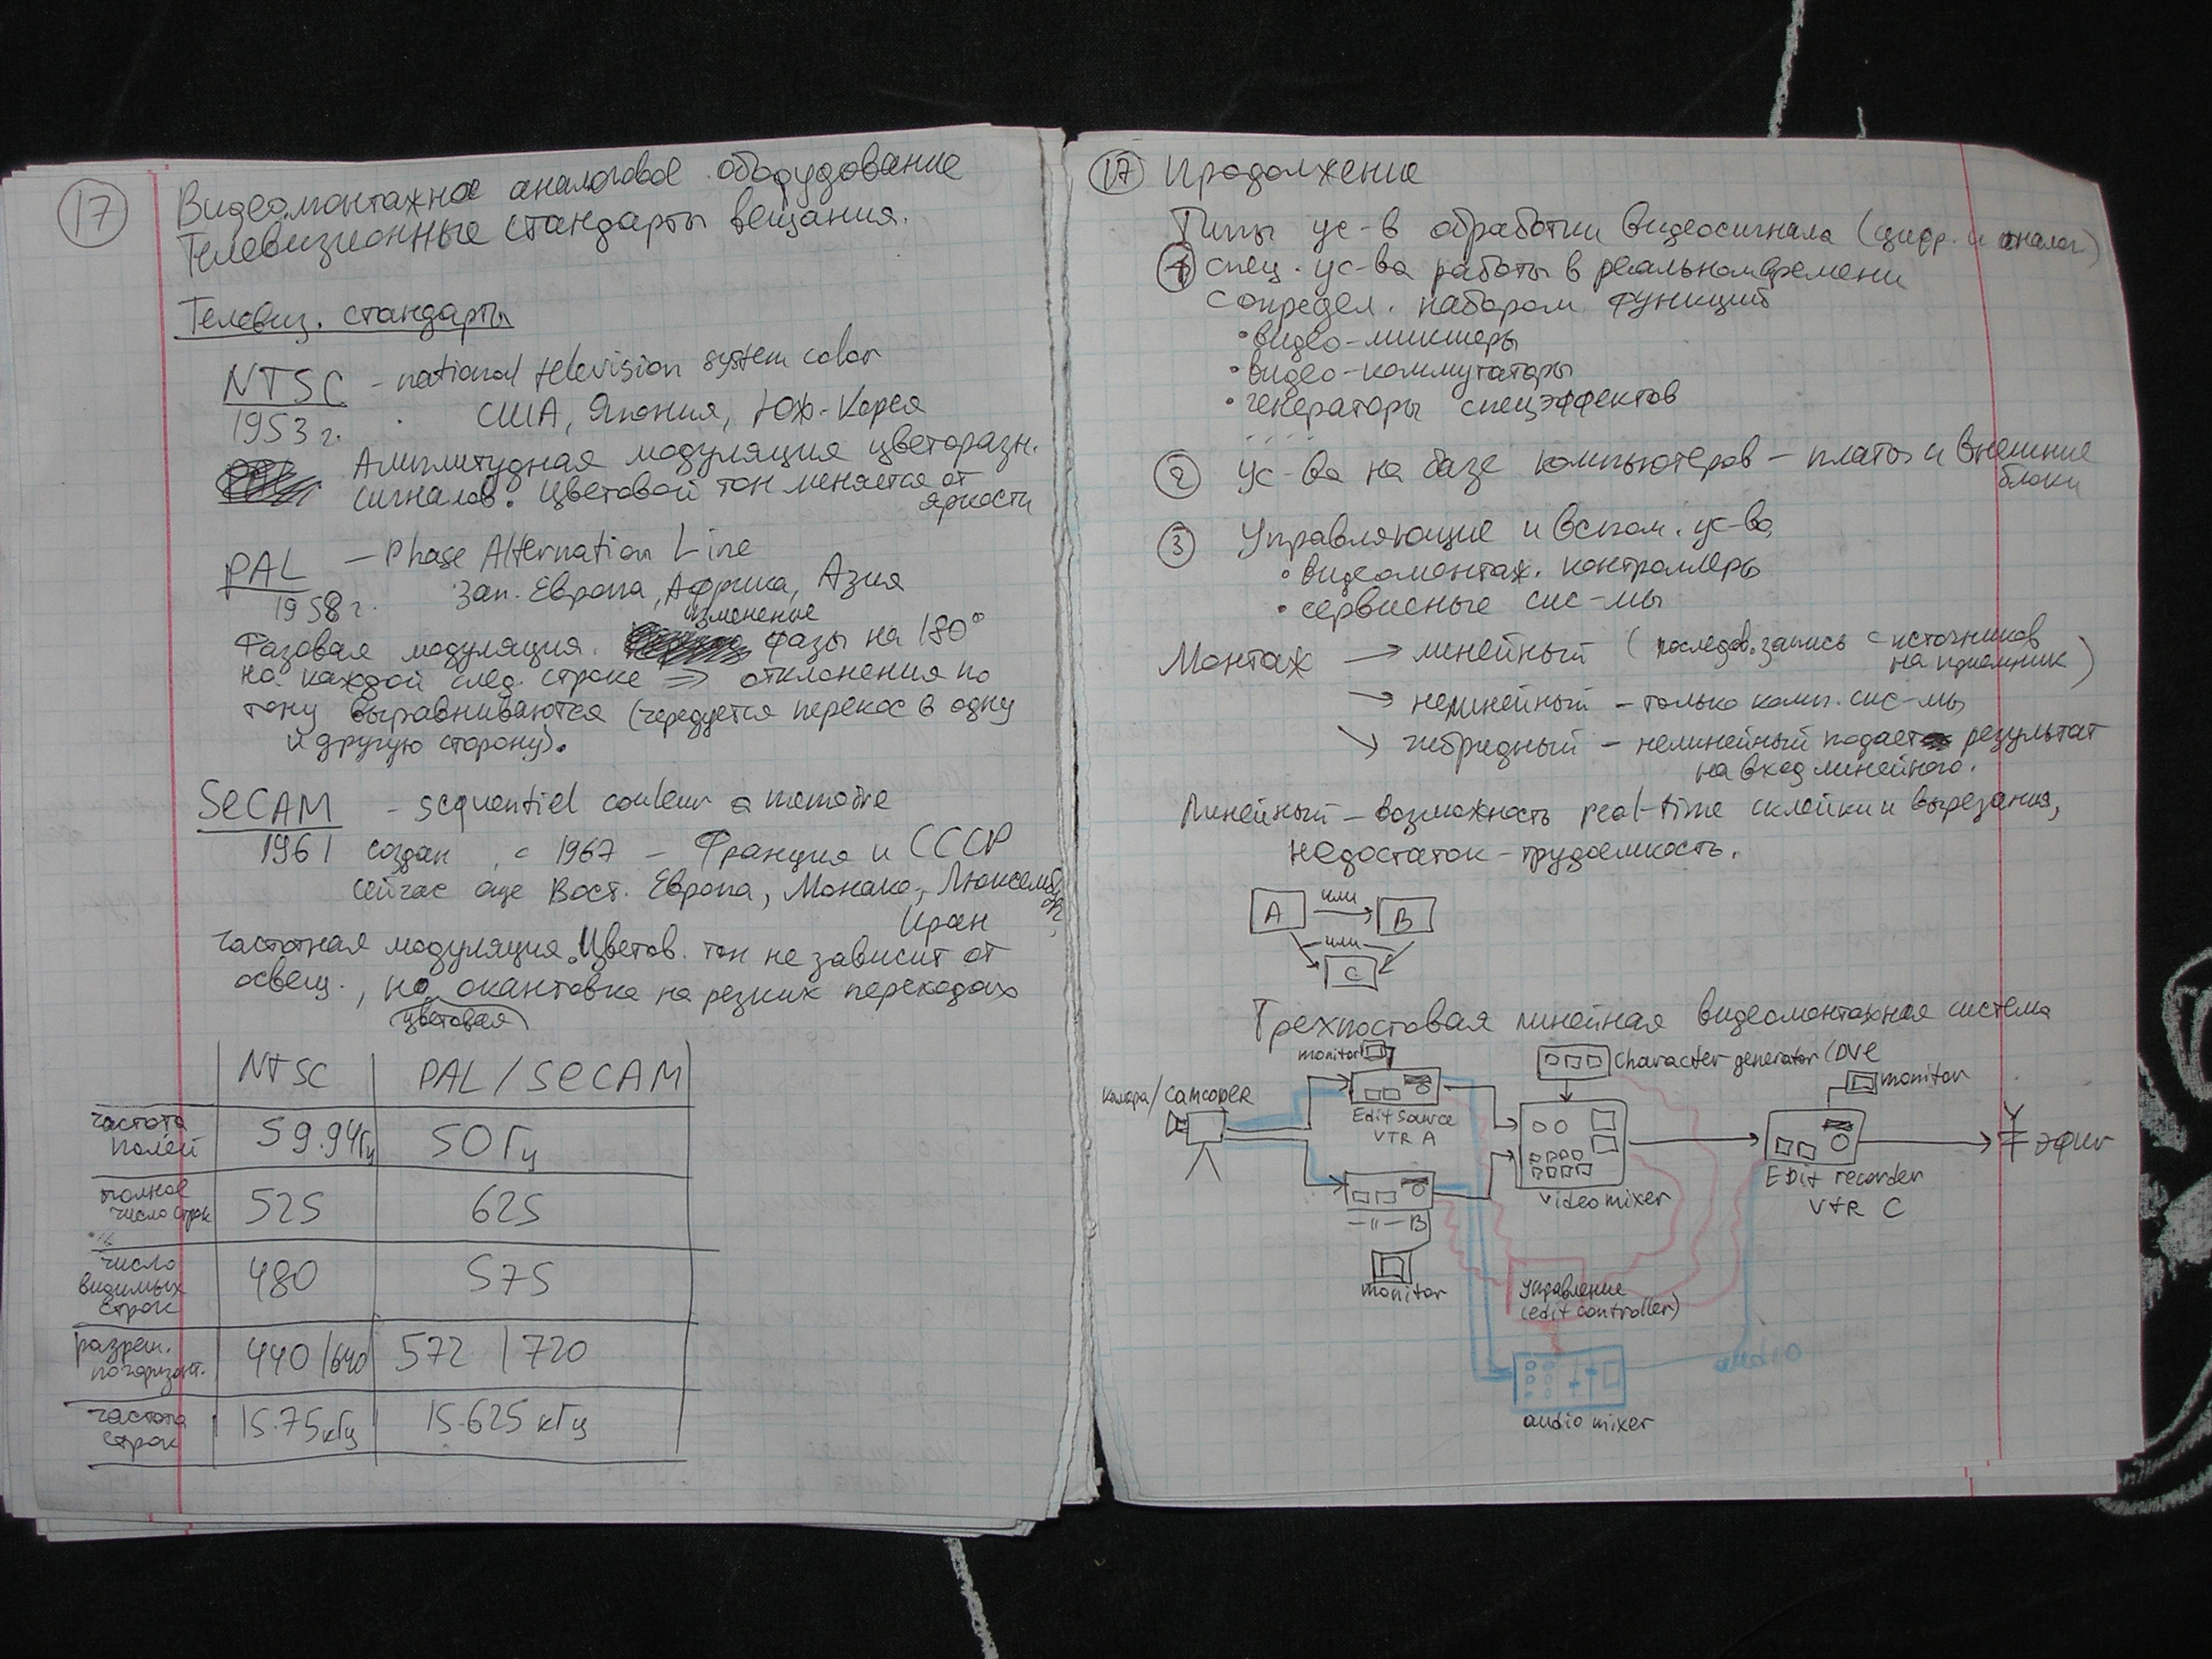 17 Видеомонтажное аналоговое оборудование
Телевизионные стандарты вещания.
Телевиз. стандарты
NTSC - national television system color
1953 г. США, Япония, Юж. Корея
Амплитудная модуляция цветоразн.
сигналов. Цветовой тон меняется от
яркости
PAL - Phase Alternation Line
1958 г. Зап. Европа, Африка, Азия
изменение
Фазовая модуляция. фазы на 180°
на каждой след. строке => отклонения по
тону выравниваются (чередуется перекос в одну
и другую сторону).
SECAM - sequentiel couleur a memoire
1961 создан, с 1967 - Франция и СССР
сейчас еще Вост. Европа, Монако, Люксембург,
Иран
Частотная модуляция. Цветов. тон не зависит от
освещ., но окантовка на резких переходах
цветовая
NTSC PAL/SECAM
частота полей 59.94Гц 50Гц
полное число строк 525 625
число видимых строк 480 575
разреш. по горизонт. 440/640 572/720
частота строк 15.75кГц 15.625 кГц
17 Продолжение
Типы ус-в обработки видеосигнала (цифр. и аналог.)
1 спец. ус-ва работы в реальном времени
с определ. набором функций
• видео-микшеры
• видео-коммутаторы
• генераторы спецэффектов
....
2 ус-ва на базе компьютеров - платы и внешние
блоки
3 Управляющие и вспом. ус-ва
• видеомонтаж. контроллеры
• сервисные сис-мы
Монтаж → линейный (последов. запись с источников
на приемник)
→ нелинейный - только комп. сис-мы
→ гибридный - нелинейный подает результат
на вход линейного.
Линейный - возможность real-time склейки и вырезания,
недостаток - трудоемкость.
A или B
или
C
Трехпостовая линейная видеомонтажная система
monitor
Character generator/DVE
monitor
камера/camcoder
Edit source
VTR A
эфир
Edit recorder
VTR C
video mixer
-"- B
monitor
Управление
(edit controller)
audio
audio mixer